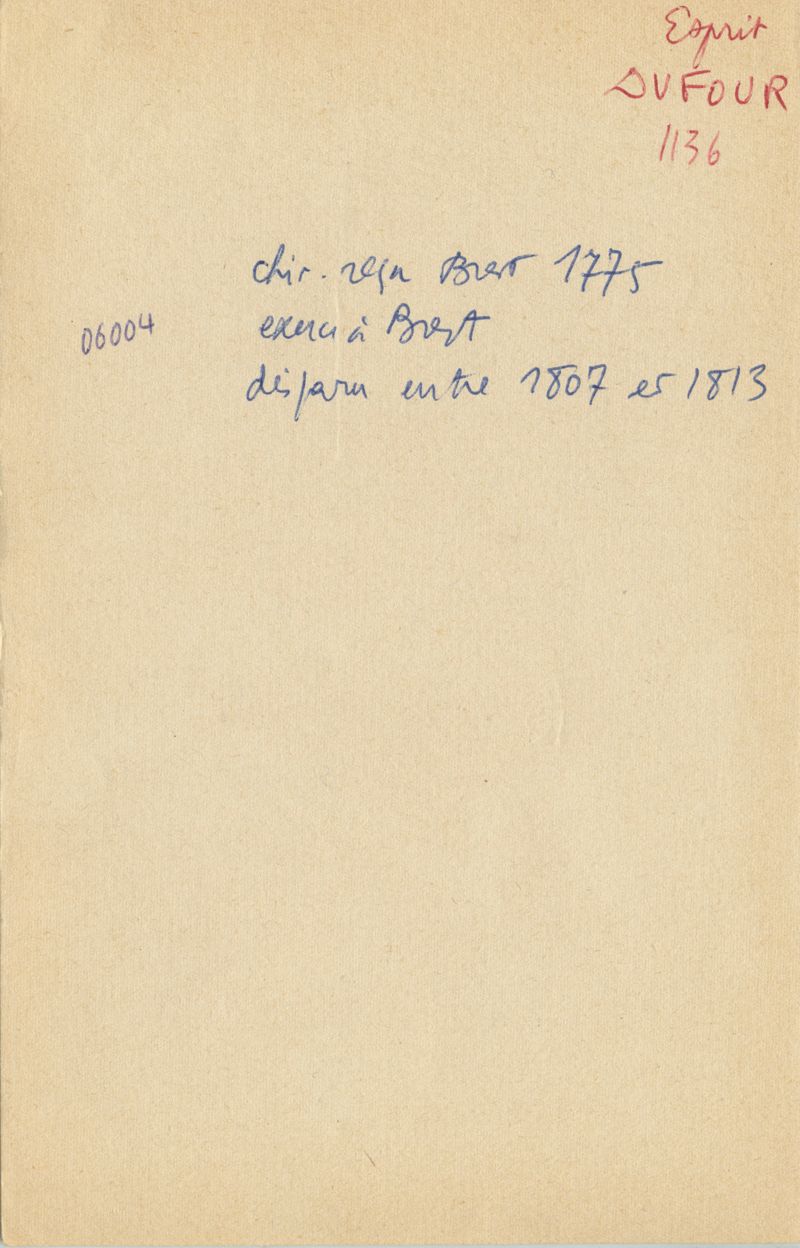 Esprit
DUFOUR
1136
chir. reçu Brest 1775
06004
exerce à Brest
disparu entre 1807 et 1813